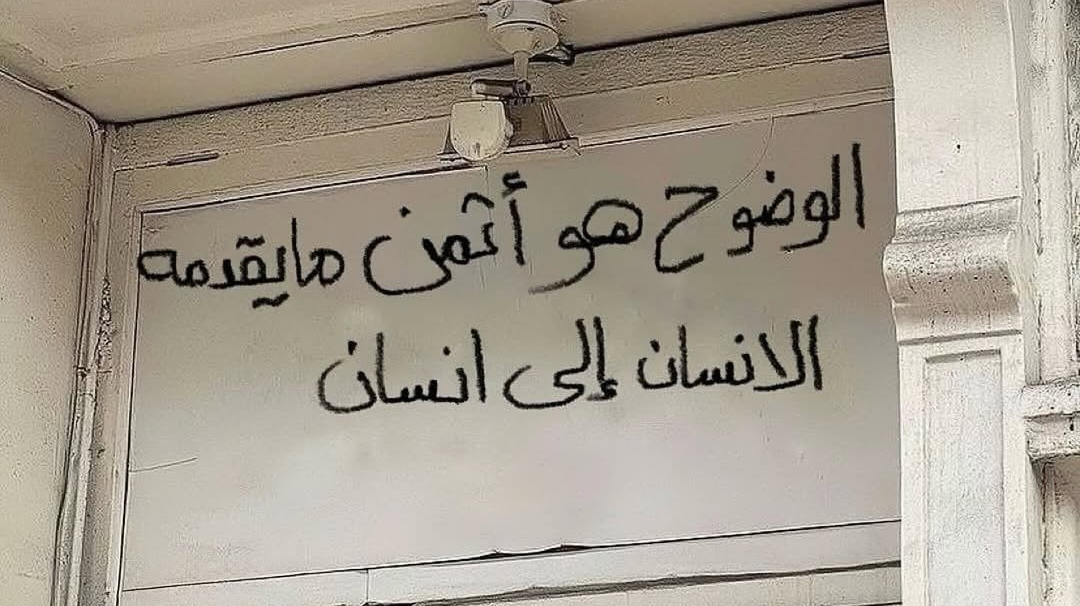 الوضوح هو أثمن مايقدمه
الانسان إلى انسان